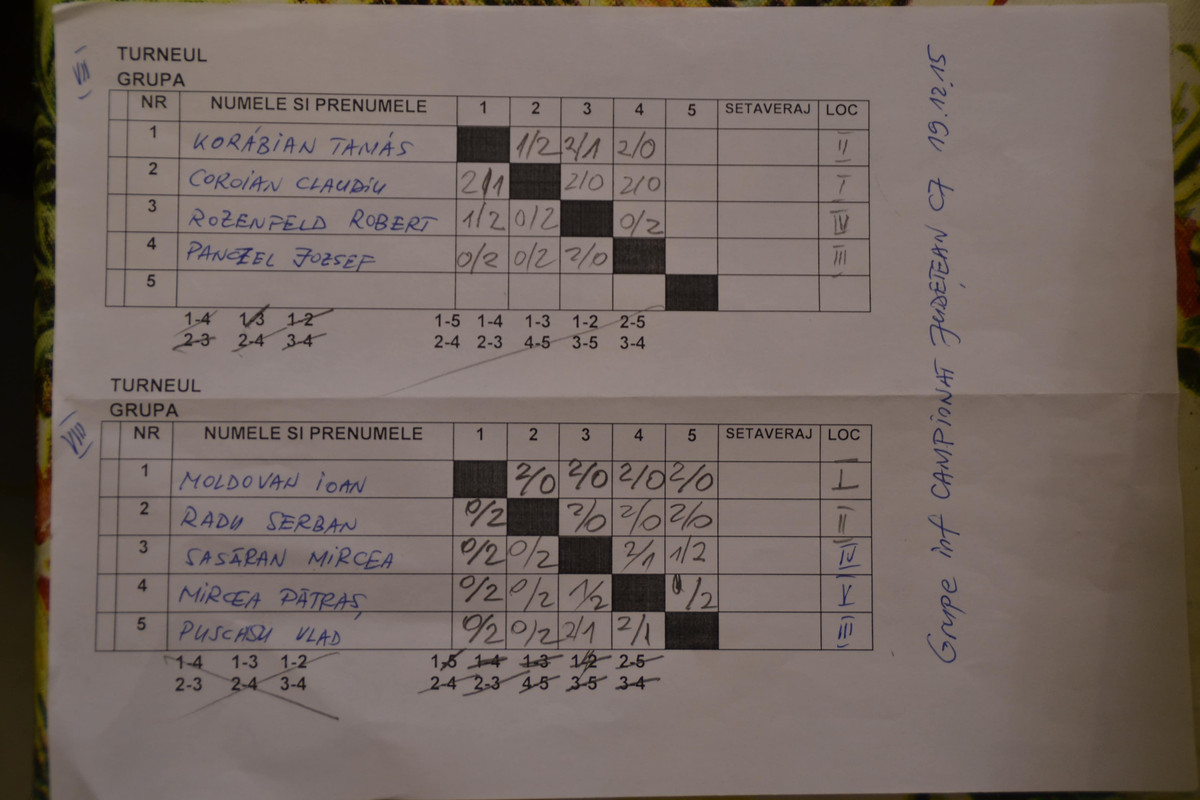 VII
TURNEUL
GRUPA
NR NUMELE SI PRENUMELE 1 2 3 4 5 SETAVERAJ LOC
1 KORÁBIAN TAMÁS 1/2 2/1 2/0 II
2 COROIAN CLAUDIU 2/1 2/0 2/0 I
3 ROZENFELD ROBERT 1/2 0/2 0/2 IV
4 PANCZEL JOZSEF 0/2 0/2 2/0 III
5
1-4 1-3 1-2 1-5 1-4 1-3 1-2 2-5
2-3 2-4 3-4 2-4 2-3 4-5 3-5 3-4
VIII
TURNEUL
GRUPA
NR NUMELE SI PRENUMELE 1 2 3 4 5 SETAVERAJ LOC
1 MOLDOVAN IOAN 2/0 2/0 2/0 2/0 I
2 RADU SERBAN 0/2 2/0 2/0 2/0 II
3 SASĂRAN MIRCEA 0/2 0/2 2/1 1/2 IV
4 MIRCEA PĂTRAȘ 0/2 0/2 1/2 /2 V
5 PUSCASU VLAD 0/2 0/2 2/1 2/1 III
1-4 1-3 1-2 1-5 1-4 1-3 1-2 2-5
2-3 2-4 3-4 2-4 2-3 4-5 3-5 3-4
Grupe inf CAMPIONAT JUDEȚEAN CJ 19.12.15